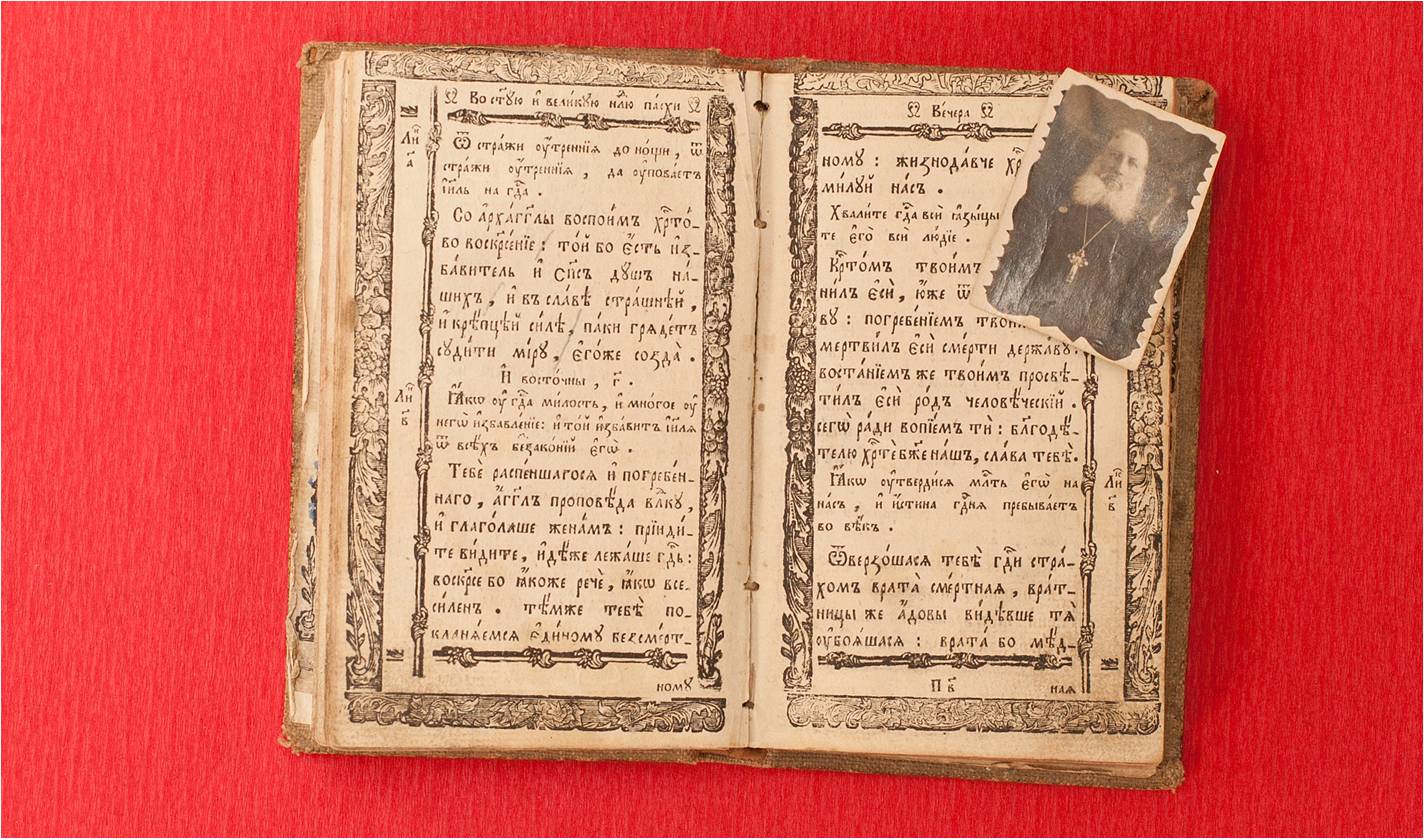 Во ст҃ꙋю и҆ вели́кꙋю нлю па́схи
Ли
а҃
Ѿ стра́жи оу҆́треннїѧ до но́щи, ѿ
стра́жи оу҆́треннїѧ, да оу҆пова́етъ
і҆и҃ль на гд҃а.
Со а҆рха́гг҃лы воспои́мъ хр҃то́-
во воскр҃се́нїе: то́й бо є҆́сть и҆з-
ба́витель и҆ сп҃съ дꙋ́шъ на́-
шихъ, и҆ въ сла́вѣ стра́шнѣй,
и҆ крѣ́пцѣй си́лѣ, па́ки грѧде́тъ
сꙋди́ти мі́рꙋ, є҆го́же созда̀.
И҆ восто́чны, г҃.
Ли
в҃
Ꙗ҆́кѡ оу҆ гд҃а ми́лость, и҆ мно́гое оу҆
негѡ̀ и҆збавле́нїе: и҆ то́й и҆зба́витъ і҆и҃лѧ
ѿ всѣ́хъ беззако́нїй є҆гѡ̀.
Тебѐ распе́ншагосѧ и҆ погребе́н-
наго, а҆́гг҃лъ проповѣ́да влⷣкꙋ,
и҆ глаго́лаше жена́мъ: прїиди́-
те ви́дите, и҆дѣ́же лежа́ше гдⷭ҇ь:
воскр҃се бо ꙗ҆́коже речѐ, ꙗ҆́кѡ все-
си́ленъ. тѣ́мже тебѣ̀ по-
кланѧ́емсѧ є҆ди́номꙋ безсме́рт-
номꙋ
Ве́чера
номꙋ: жизнода́вче хр҃
ми́лꙋй на́съ.
Хвали́те гд҃а всѝ ꙗ҆зы́цы
те є҆го̀ всѝ лю́дїе.
Крⷭ҇то́мъ твои́мъ
ни́лъ є҆сѝ, ю҆́же ѿ
вꙋ: погребе́нїемъ твои́
мертви́лъ є҆сѝ сме́рти держа́вꙋ.
воста́нїемъ же твои́мъ просвѣ-
ти́лъ є҆сѝ ро́дъ человѣ́ческїй.
сегѡ̀ ра́ди вопїе́мъ ти̑: бл҃годѣ́-
телю хр҃тѐ бж҃е на́шъ, сла́ва тебѣ̀.
Ꙗ҆́кѡ оу҆тверди́сѧ млⷭ҇ть є҆гѡ̀ на
на́съ, и҆ и҆́стина гдⷭ҇нѧ пребыва́етъ
во вѣ́къ.
Ли
в҃
Ѿверзо́шасѧ тебѣ̀ гдⷭ҇и стра́-
хомъ врата̀ сме́ртнаѧ, вра́т-
ницы же а҆́довы ви́дѣвше тѧ̀
оу҆боѧ́шасѧ: врата́ бо мѣ́д-
П в҃
наѧ